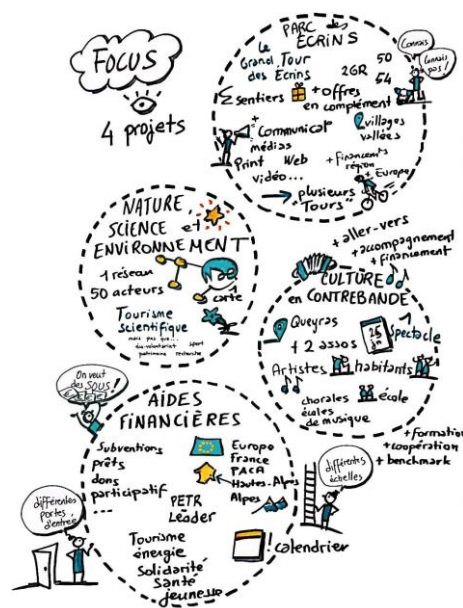 FOCUS
4 projets
PARC des
ECRINS
Le
Grand Tour
des Ecrins
2GR
50
54
Connais
Connais
pas !
sentiers
+ offres
en complément
+
Communicat°
médias
Print Web
vidéo...
villages
vallées
+ financements
région
+ Europe
→ plusieurs
"Tours"
NATURE
SCIENCE et
ENVIRONNEMENT
1 réseau
50 acteurs
carte
Tourisme
scientifique
mais pas que...
éco-volontariat sport
patrimoine recherche
+ aller-vers
+ accompagnement
+ financement
CULTURE
en CONTREBANDE
Queyras
+ 2 assos
Spectacle
Artistes
habitants
chorales
écoles
de musique
école
On veut
des SOUS !
AIDES
FINANCIÈRES
Subventions
prêts
dons
participatif
...
Europe
France
PACA
Hautes-Alpes
Alpes
PETR
Leader
Tourisme
énergie
Solidarité
Santé
jeunesse
! calendrier
différentes
portes
d'entrée
différentes
échelles
+ formation
+ coopération
+ benchmark